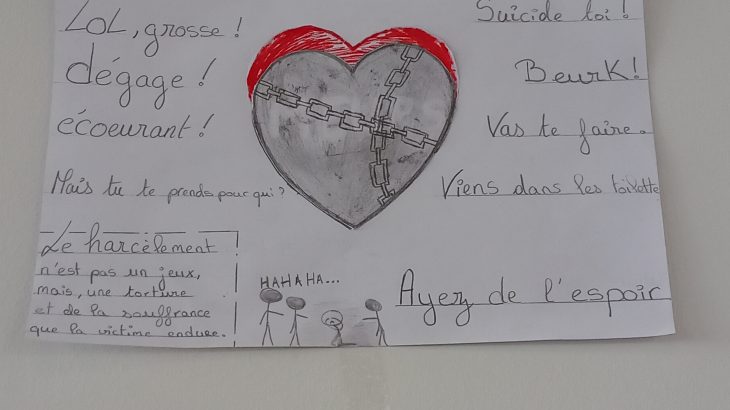 LOL, grosse !
dégage !
écoeurant !
Mais tu te prends pour qui ?
Le harcèlement
n'est pas un jeux,
mais, une torture
et de la souffrance
que la victime endure.
HAHAHA...
Suicide toi !
BeurK !
Vas te faire.
Viens dans les toilette
Ayez de l'espoir